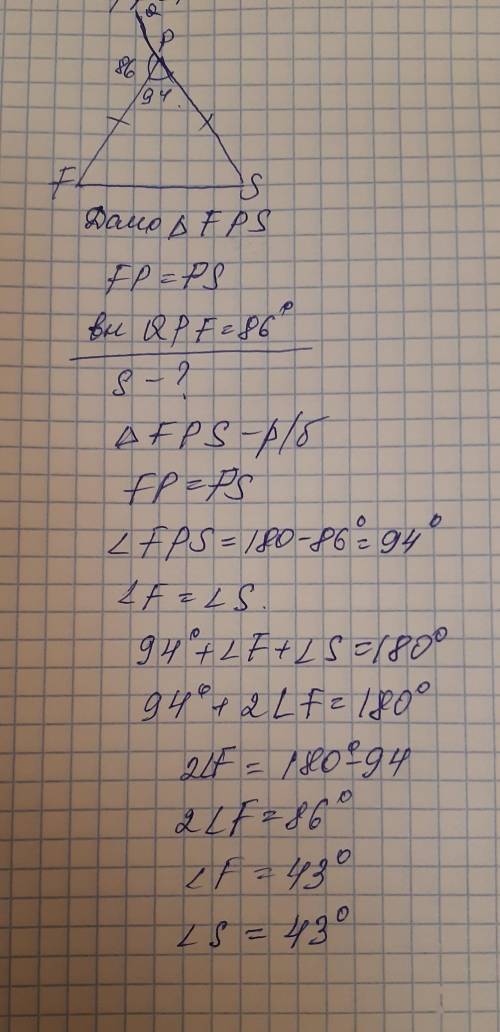 Q
P
86
94
F S
Дано △ FPS
FP = PS
вн QPF = 86°
S - ?
△ FPS - р/б
FP = PS
∠FPS = 180 - 86° = 94°
∠F = ∠S.
94° + ∠F + ∠S = 180°
94° + 2∠F = 180°
2∠F = 180° - 94
2∠F = 86°
∠F = 43°
∠S = 43°